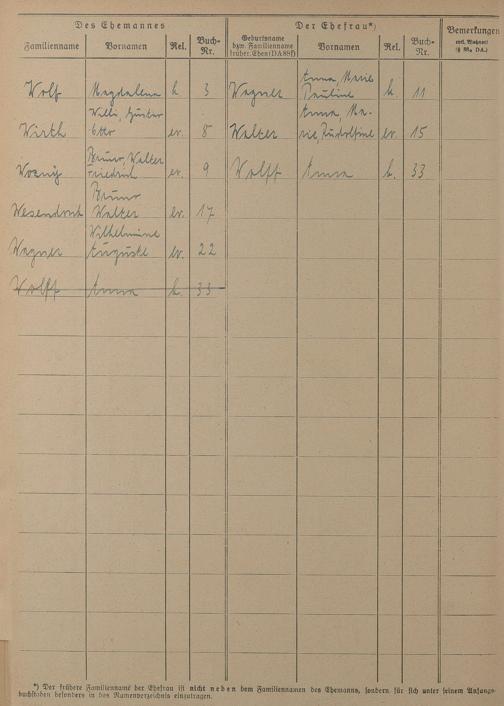 Des Ehemannes
Der Ehefrau*)
Bemerkungen
evtl. Wohnort
Familienname Vornamen Rel. Buch-Nr.
Geburtsname
bzw. Familienname
Vornamen Rel. Buch-Nr.
Wolf Magdalena k 3
Anna, Marie
Wagner Pauline k. 11
Willi, Gustav
Wirth Otto ev. 8
Anna, Ma-
Walter rie, Rudolfine ev. 15
Bruno, Walter
Friedrich ev. 9
Wolff Anna k. 33
Bruno
Wesendonk Walter ev. 17
Wilhelmine
Wagner Auguste ev. 22
Wolff Anna k. 33
*) Der frühere Familienname der Ehefrau ist nicht neben dem Familiennamen des Ehemanns, sondern für sich unter seinem Anfangs-
buchstaben besonders in das Namenverzeichnis einzutragen.